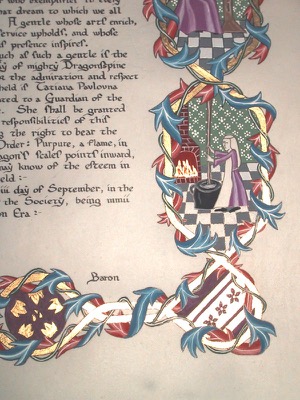 who exemplifies to every
that dream to which we all
A gentle whose arts enrich,
service upholds, and whose
s presence inspires.
uch as such a gentle is the
y of mighty Dragonspine
r the admiration and respect
held is Tatiana Pavlovna
ted to a Guardian of the
. She shall be granted
responsibilities of this
ng the right to bear the
Order: Purpure, a flame, in
ragon's scales points inward,
may know of the esteem in
eld :~
iii day of September, in the
the Society, being
on Era :~
Baron